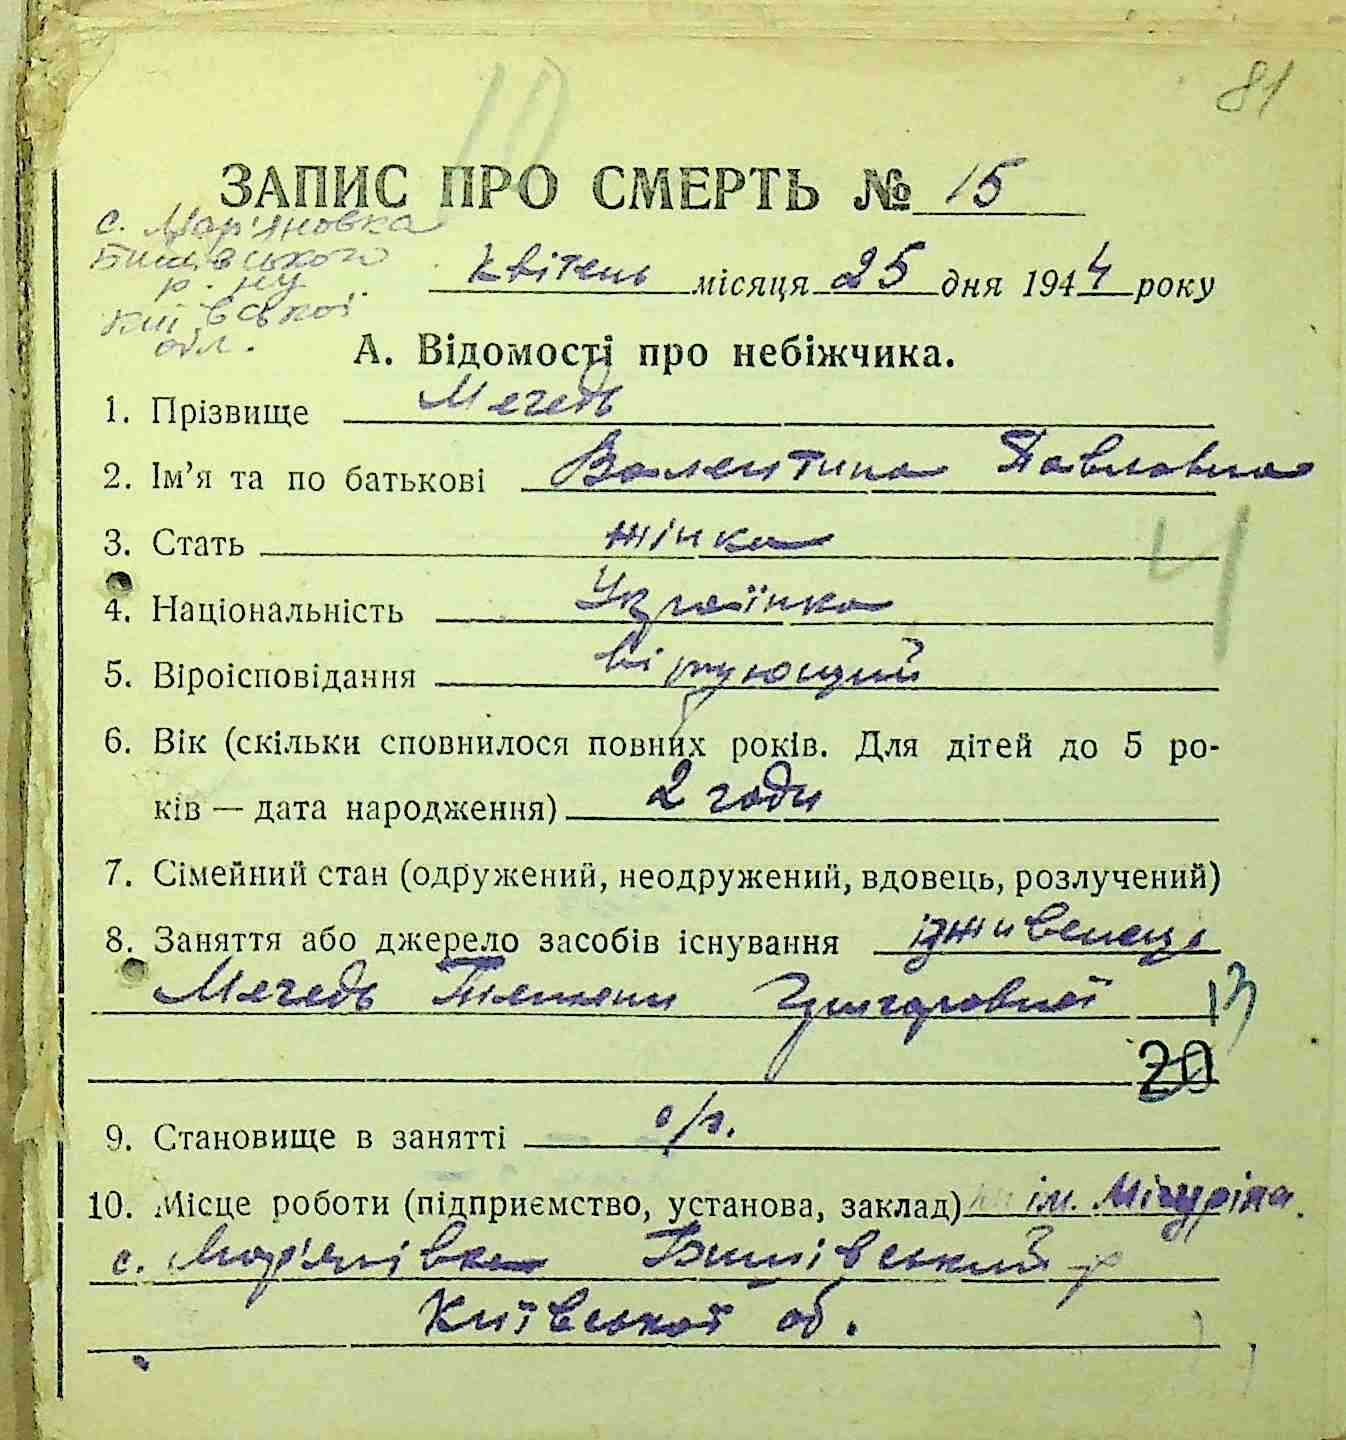 81
10
ЗАПИС ПРО СМЕРТЬ № 15
с. Мар'яновка
Бишівського
р-ну
Київської
обл.
квітень місяця 25 дня 1944 року
А. Відомості про небіжчика.
1. Прізвище Мегедь
2. Ім'я та по батькові Валентина Павловна
3. Стать жінка
4. Національність Українка
5. Віроісповідання віруюищий
6. Вік (скільки сповнилося повних років. Для дітей до 5 ро-
ків — дата народження) 2 годи
7. Сімейний стан (одружений, неодружений, вдовець, розлучений)
8. Заняття або джерело засобів існування ідживенець
Мегедь Тетяни Григоровної
13
20
9. Становище в занятті
10. Місце роботи (підприємство, установа, заклад) ім. Мічуріна.
с. Мар'янівка Бишівський р
Київської об.